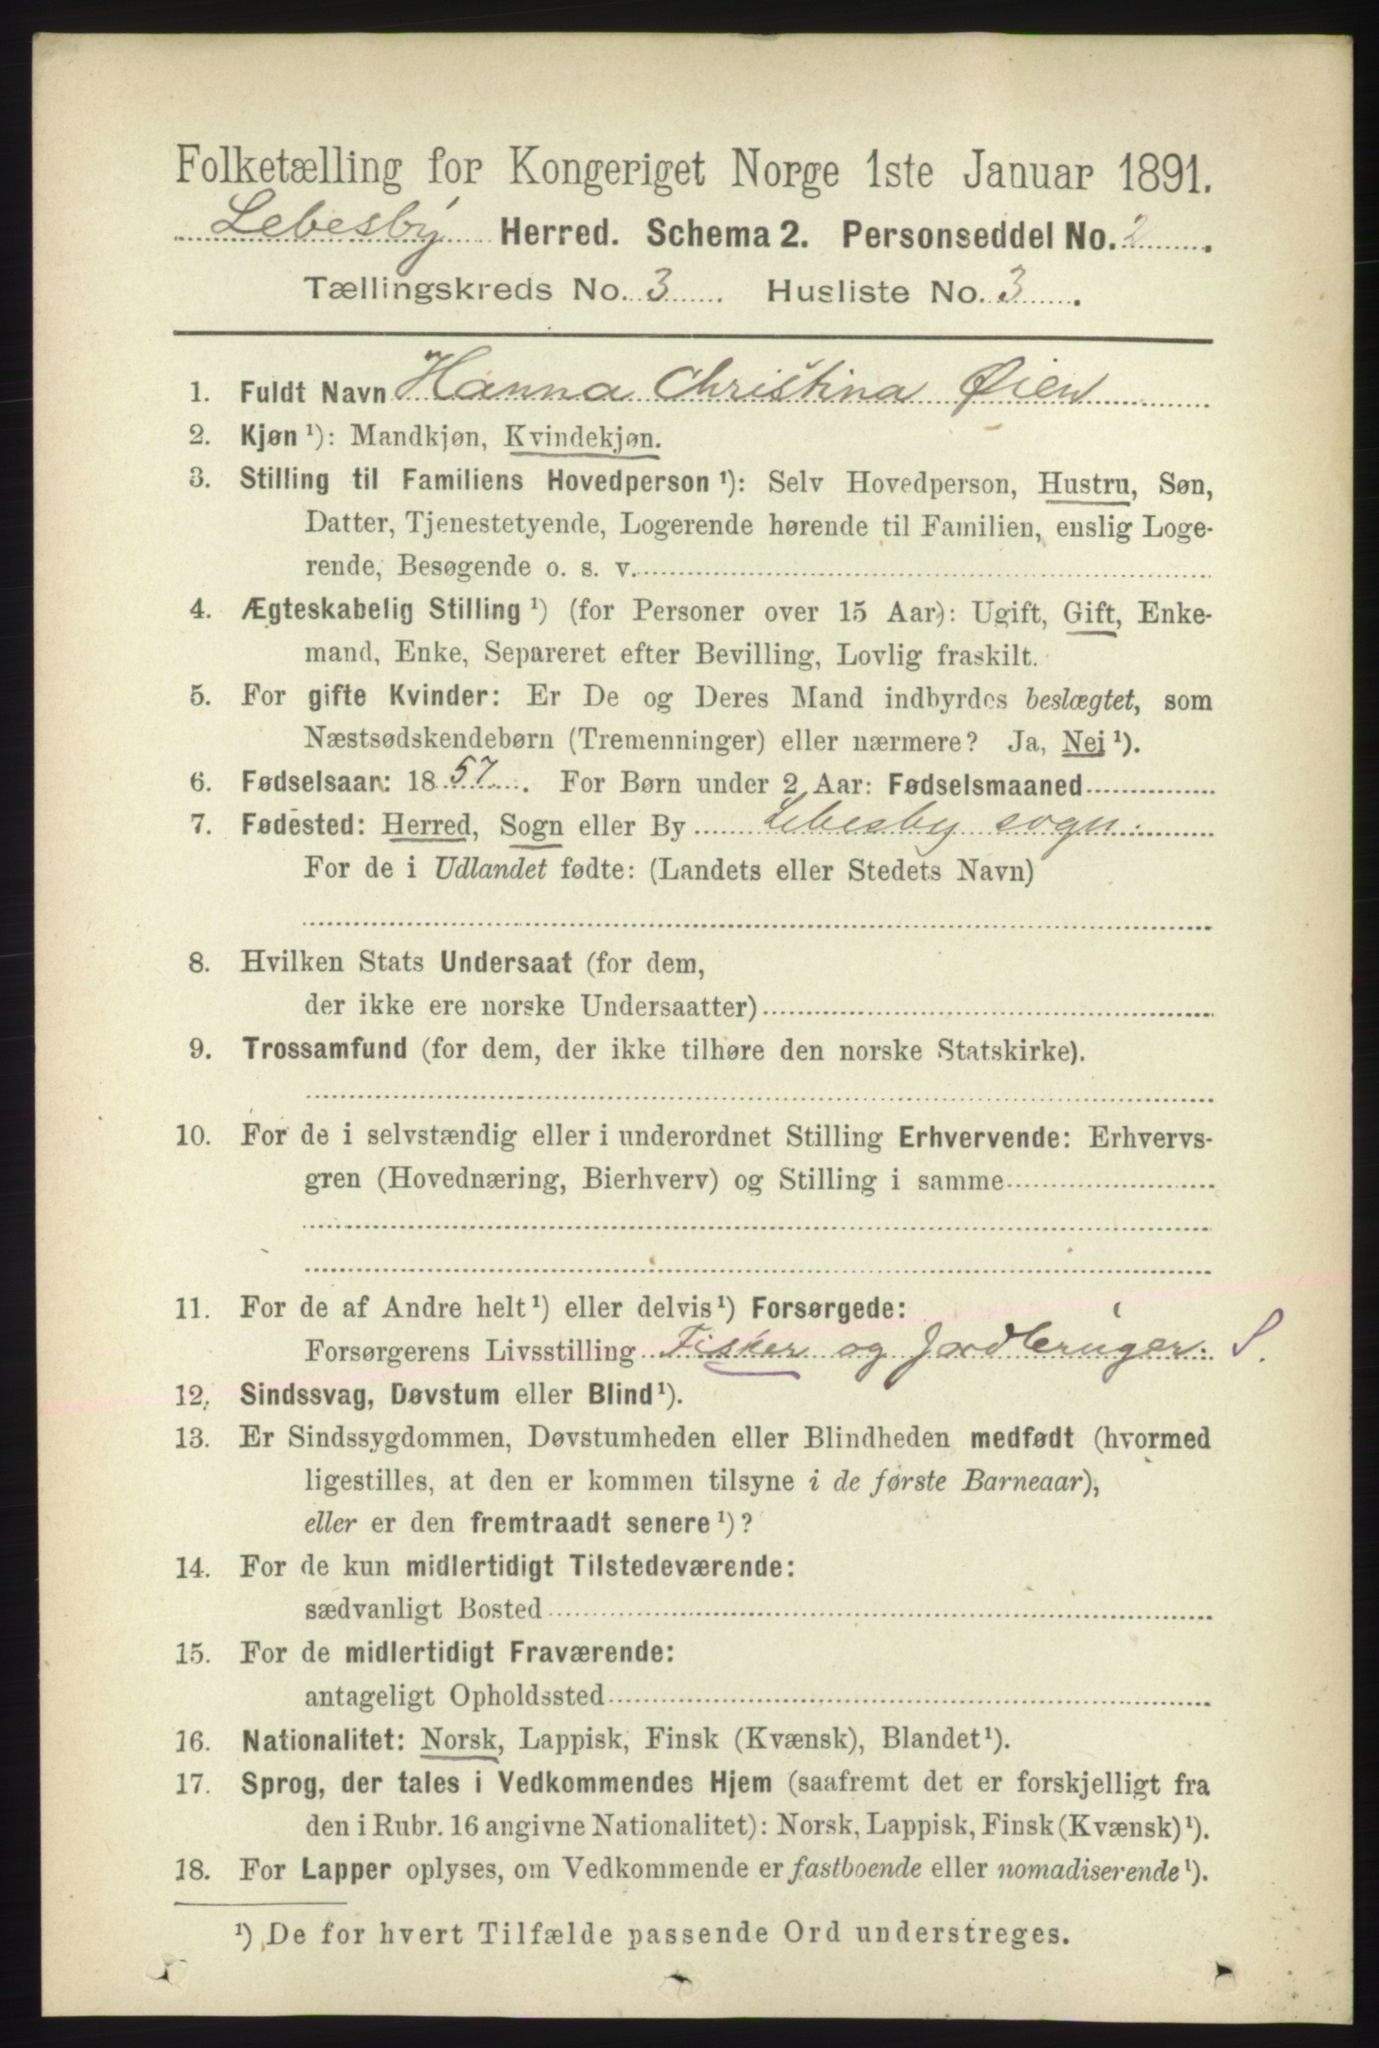 Folketælling for Kongeriget Norge 1ste Januar 1891.
Lebesby Herred. Schema 2. Personseddel No. 2.
Tællingskreds No. 3 Husliste No. 3.
1. Fuldt Navn Hanna Christina Øien
2. Kjøn ¹): Mandkjøn, Kvindekjøn.
3. Stilling til Familiens Hovedperson ¹): Selv Hovedperson, Hustru, Søn,
Datter, Tjenestetyende, Logerende hørende til Familien, enslig Loge-
rende, Besøgende o. s. v.
4. Ægteskabelig Stilling ¹) (for Personer over 15 Aar): Ugift, Gift, Enke-
mand, Enke, Separeret efter Bevilling, Lovlig fraskilt.
5. For gifte Kvinder: Er De og Deres Mand indbyrdes beslægtet, som
Næstsødskendebørn (Tremenninger) eller nærmere? Ja, Nej ¹).
6. Fødselsaar: 1857. For Børn under 2 Aar: Fødselsmaaned
7. Fødested: Herred, Sogn eller By Lebesby sogn.
For de i Udlandet fødte: (Landets eller Stedets Navn)
8. Hvilken Stats Undersaat (for dem,
der ikke ere norske Undersaatter)
9. Trossamfund (for dem, der ikke tilhøre den norske Statskirke).
10. For de i selvstændig eller i underordnet Stilling Erhvervende: Erhvervs-
gren (Hovednæring, Bierhverv) og Stilling i samme
11. For de af Andre helt ¹) eller delvis ¹) Forsørgede:
Forsørgerens Livsstilling Fisker og Jordbruger. S.
12. Sindssvag, Døvstum eller Blind ¹).
13. Er Sindssygdommen, Døvstumheden eller Blindheden medfødt (hvormed
ligestilles, at den er kommen tilsyne i de første Barneaar),
eller er den fremtraadt senere ¹)?
14. For de kun midlertidigt Tilstedeværende:
sædvanligt Bosted
15. For de midlertidigt Fraværende:
antageligt Opholdssted
16. Nationalitet: Norsk, Lappisk, Finsk (Kvænsk), Blandet ¹).
17. Sprog, der tales i Vedkommendes Hjem (saafremt det er forskjelligt fra
den i Rubr. 16 angivne Nationalitet): Norsk, Lappisk, Finsk (Kvænsk) ¹).
18. For Lapper oplyses, om Vedkommende er fastboende eller nomadiserende ¹).
¹) De for hvert Tilfælde passende Ord understreges.